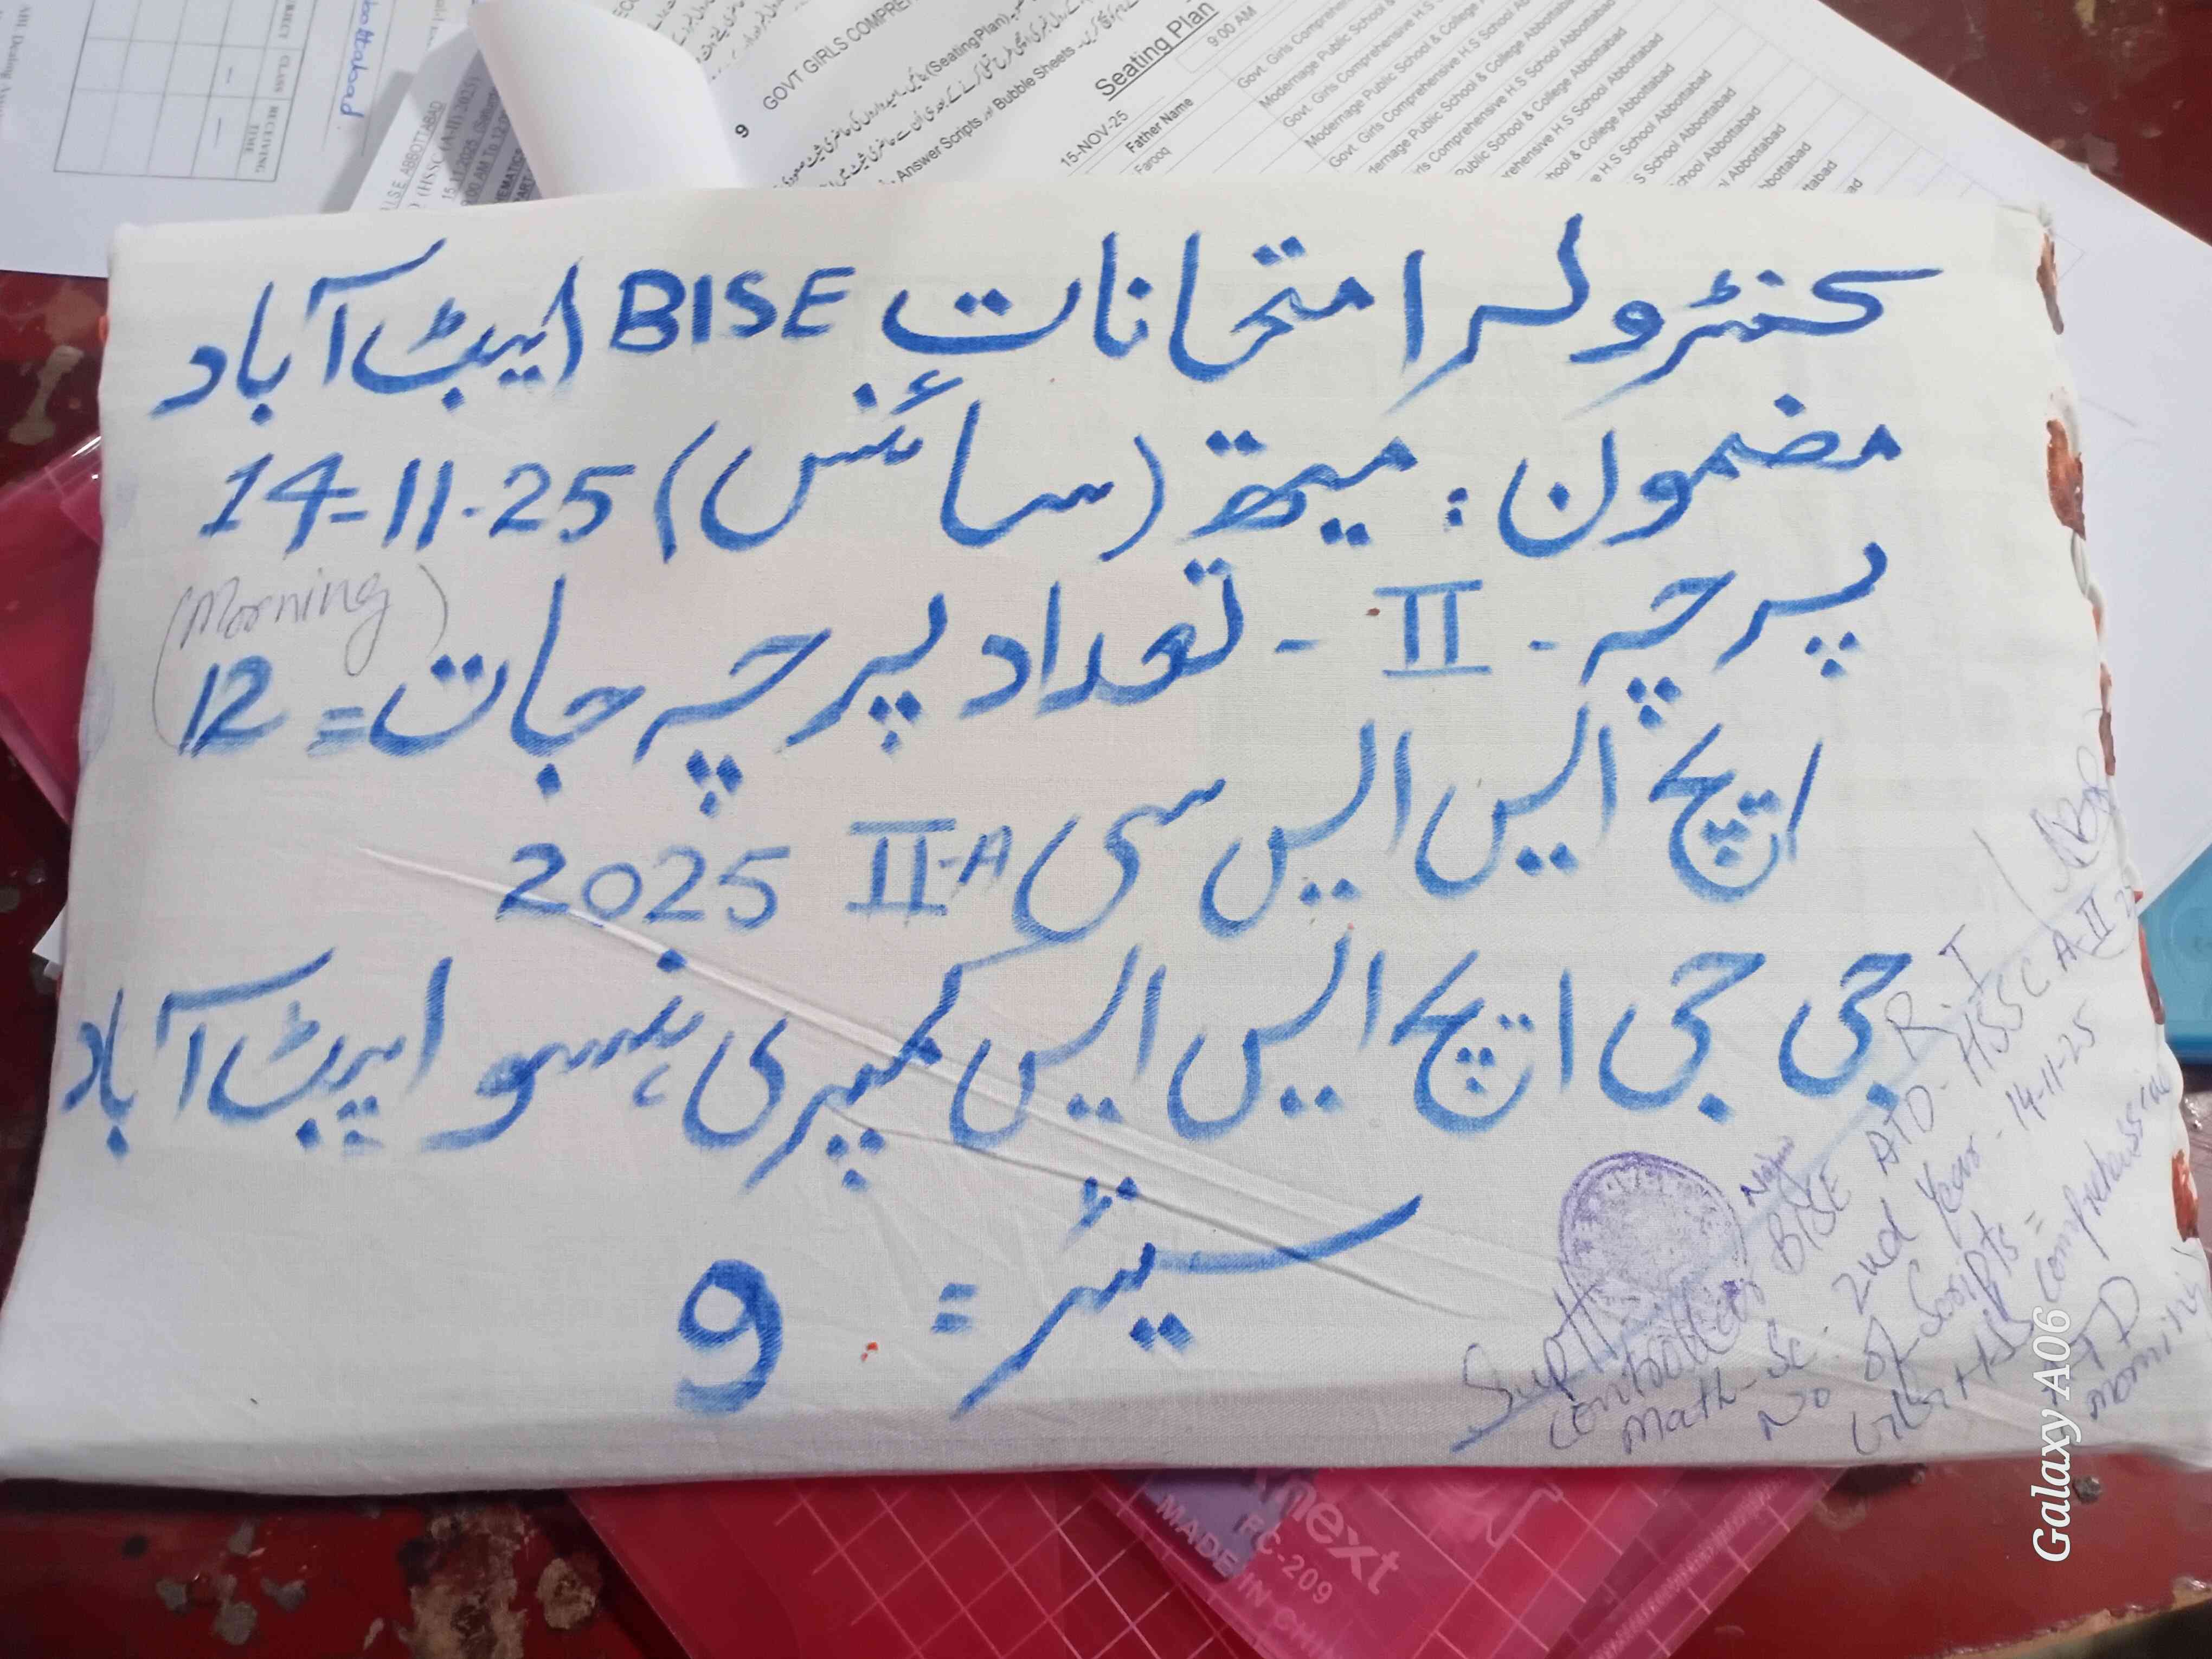 کنٹرولر امتحانات BISE ایبٹ آباد
مضمون : میتھ (سائنس) 14-11-25
(Morning)
پرچہ - II - تعداد پرچہ جات = 12
ایچ ایس ایس سی II-A 2025
جی جی ایچ ایس ایس کمپری ہنسو ایبٹ آباد
سینٹر = 9
R.I
Controller BISE ATD - HSSC A-II
Math-Sc. 2nd Year - 14-11-25
No of Scripts =
Comprehensive
ATD
morning
9 GOVT GIRLS
(Seating Plan)
Answer Scripts اور Bubble Sheets
Seating Plan
9:00 AM
15-NOV-25
Father Name
Farooq
Govt. Girls Comprehen
Modernage Public School &
Govt. Girls Comprehensive H.S
Modernage Public School & College
Govt. Girls Comprehensive H.S School Ab
dernage Public School & College Abbottab
rls Comprehensive H.S School Abbottabad
Public School & College Abbottabad
rehensive H.S School Abbottabad
hool & College Abbottabad
e H.S School Abbottabad
S School Abbottabad
chool Abbottabad
l Abbottabad
bbottabad
tabad
ad
SUBJECT CLASS RECEIVING TIME
I.S.E. ABBOTTABAD
(HSSC (A-II) 2025)
15.11.2025
next
FC-209
MADE IN CHI
Galaxy A06